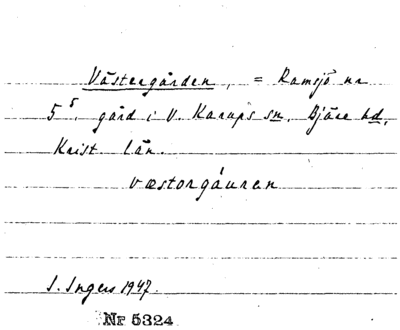 Västergården, = Ramsjö nr
5⁵, gård i V. Karups sn, Bjäre hd,
Krist län.
væstorgáuren
I. Ingers 1947.
Nr 5324